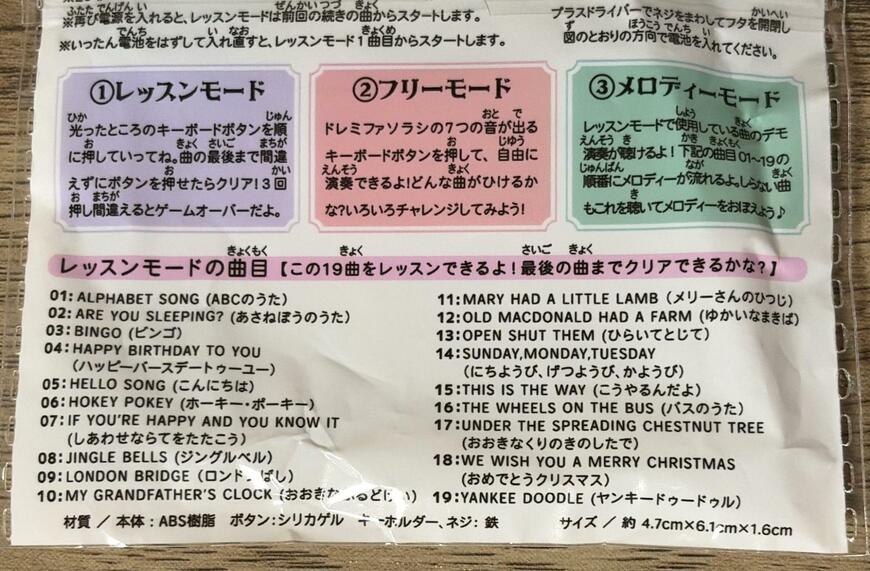 ※再び電源を入れると、レッスンモードは前回の続きの曲からスタートします。
※いったん電池をはずして入れ直すと、レッスンモード1曲目からスタートします。
プラスドライバーでネジをまわしてフタを開閉し
図のとおりの方向で電池を入れてください。
①レッスンモード
光ったところのキーボードボタンを順
に押していってね。曲の最後まで間違
えずにボタンを押せたらクリア!3回
押し間違えるとゲームオーバーだよ。
②フリーモード
ドレミファソラシの7つの音が出る
キーボードボタンを押して、自由に
演奏できるよ!どんな曲がひけるか
な?いろいろチャレンジしてみよう!
③メロディーモード
レッスンモードで使用している曲のデモ
演奏が聴けるよ!下記の曲目01～19の
順番にメロディーが流れるよ。しらない曲
もこれを聴いてメロディーをおぼえよう♪
レッスンモードの曲目【この19曲をレッスンできるよ!最後の曲までクリアできるかな?】
01:ALPHABET SONG (ABCのうた)
02:ARE YOU SLEEPING? (あさねぼうのうた)
03:BINGO (ビンゴ)
04:HAPPY BIRTHDAY TO YOU
(ハッピーバースデートゥーユー)
05:HELLO SONG (こんにちは)
06:HOKEY POKEY (ホーキー・ポーキー)
07:IF YOU'RE HAPPY AND YOU KNOW IT
(しあわせならてをたたこう)
08:JINGLE BELLS (ジングルベル)
09:LONDON BRIDGE (ロンドンばし)
10:MY GRANDFATHER'S CLOCK (おおきなふるどけい)
11:MARY HAD A LITTLE LAMB (メリーさんのひつじ)
12:OLD MACDONALD HAD A FARM (ゆかいなまきば)
13:OPEN SHUT THEM (ひらいてとじて)
14:SUNDAY,MONDAY,TUESDAY
(にちようび、げつようび、かようび)
15:THIS IS THE WAY (こうやるんだよ)
16:THE WHEELS ON THE BUS (バスのうた)
17:UNDER THE SPREADING CHESTNUT TREE
(おおきなくりのきのしたで)
18:WE WISH YOU A MERRY CHRISTMAS
(おめでとうクリスマス)
19:YANKEE DOODLE (ヤンキードゥードゥル)
材質 / 本体:ABS樹脂 ボタン:シリカゲル キーホルダー、ネジ:鉄 サイズ / 約 4.7cm×6.1cm×1.6cm